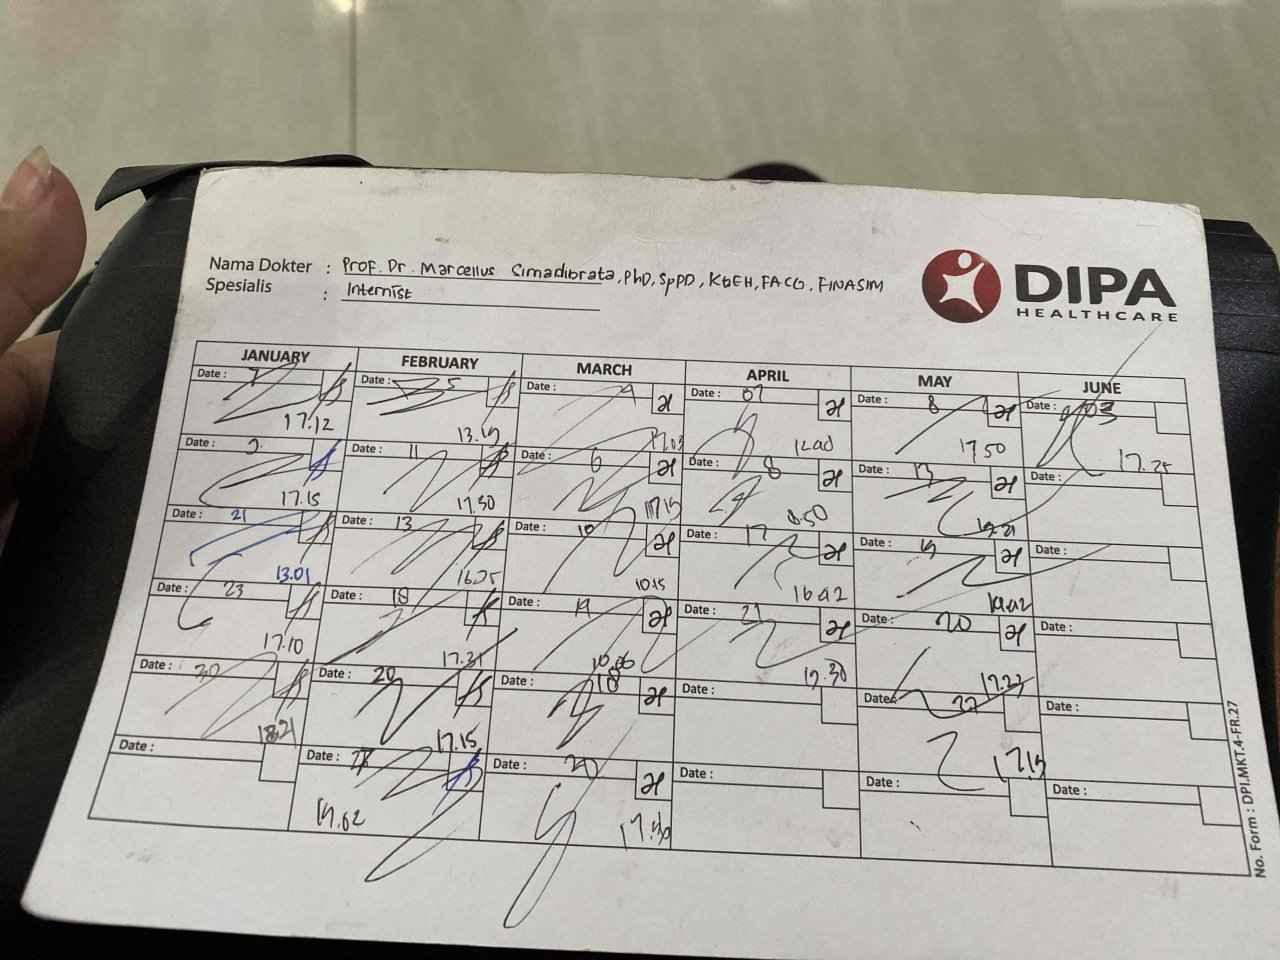 Nama Dokter : Prof. Dr. Marcellus Simadibrata, PhD, SpPD, KGEH, FACG, FINASIM
Spesialis : Internist
DIPA
HEALTHCARE
JANUARY FEBRUARY MARCH APRIL MAY JUNE
Date : 7 Date : 5 Date : 4 Date : 07 Date : 8 Date : 03
17.12 13.19 17.03 17.50 17.25
Date : Date : 11 Date : 6 Date : 8 Date : 13 Date :
17.15 17.30 17.15
Date : 21 Date : 13 Date : 10 Date : 17 Date : 15 Date :
13.01 16.25 10.15 16.02
Date : 23 Date : 18 Date : 19 Date : 21 Date : 20 Date :
17.10 17.31 10.06 17.30 17.22
Date : 30 Date : 20 Date : 18 Date : Date : 22 Date :
18.21 17.15 17.15
Date : Date : Date : 20 Date : Date : Date :
17.40
No. Form : DPI.MKT.4-FR.27